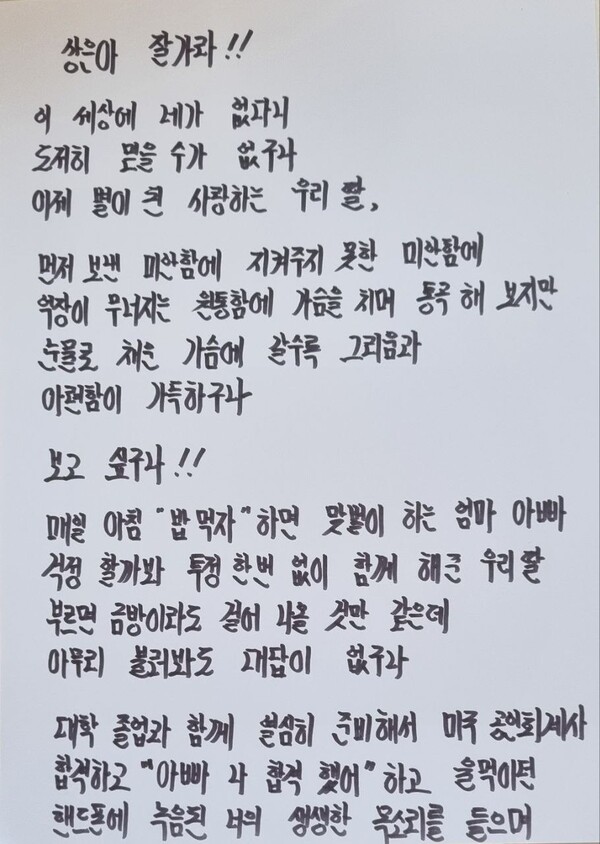 상은아 잘가라!!
이 세상에 네가 없다니
도저히 믿을 수가 없구나
이제 별이 된 사랑하는 우리 딸,
먼저 보낸 미안함에 지켜주지 못한 미안함에
억장이 무너지는 원통함에 가슴을 치며 통곡 해 보지만
눈물로 채운 가슴에 갈수록 그리움과
아련함이 가득하구나
보고 싶구나!!
매일 아침 "밥 먹자"하면 맞벌이 하는 엄마 아빠
걱정 할까봐 투정 한번 없이 함께 해준 우리딸
부르면 금방이라도 걸어 나올 것만 같은데
아무리 불러봐도 대답이 없구나
대학 졸업과 함께 열심히 준비해서 미국 공인회계사
합격하고 "아빠 나 합격 했어"하고 울먹이던
핸드폰에 녹음된 너의 생생한 목소리를 들으며